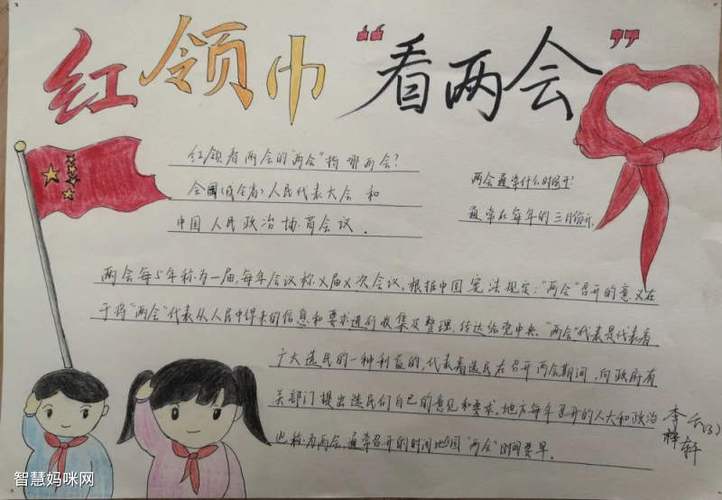 红领巾“看两会”
红领看两会的“两会”指哪两会?
全国(或全省)人民代表大会 和
中国人民政治协商会议.
两会通常什么时间开?
通常在每年的三月份开.
两会每5年称为一届,每年会议称X届X次会议,根据中国宪法规定:“两会”召开的意义在
于将“两会”代表从人民中得来的信息和要求进行收集及整理,传达给党中央.“两会”代表是代表着
广大选民的一种利益的,代表着选民在召开两会期间,向政府有
关部门提出选民们自己的意见和要求.地方每年召开的人大和政协
也称为两会,通常召开的时间比全国“两会”时间要早.
李梓轩
智慧妈咪网